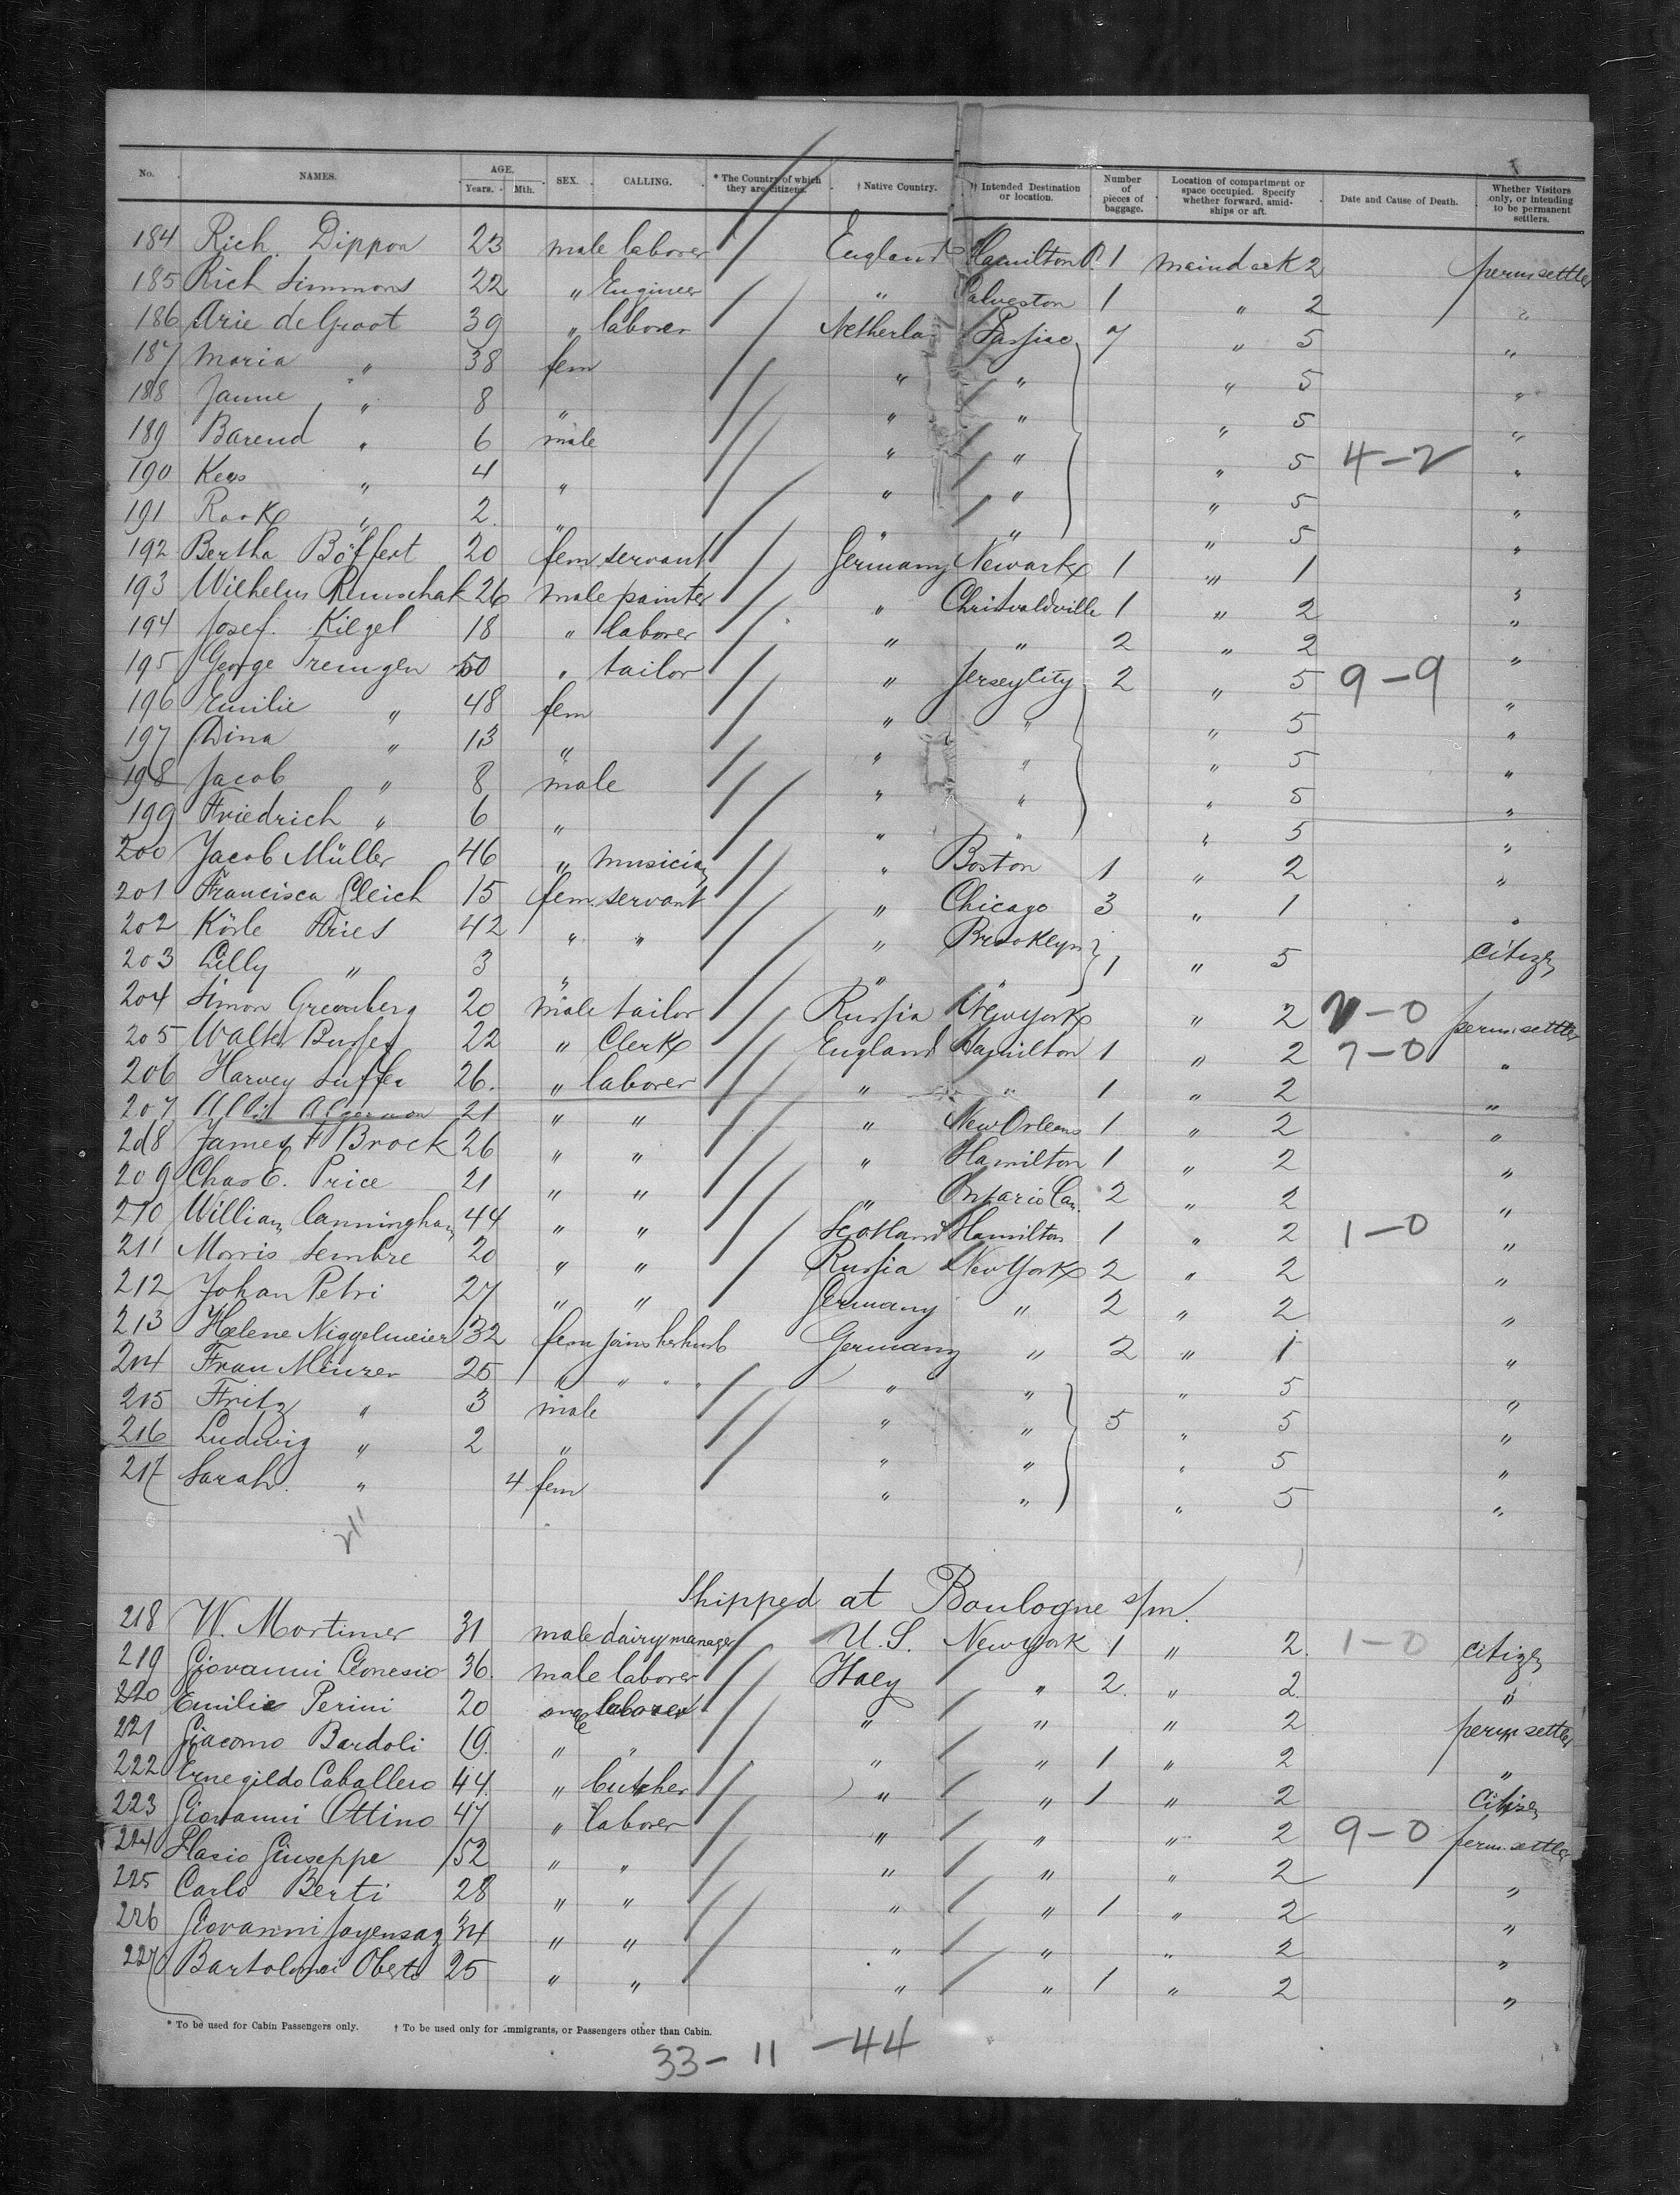 No. NAMES. AGE. Years. Mth. SEX. CALLING. * The Country of which they are citizens. † Native Country. † Intended Destination or location. Number of pieces of baggage. Location of compartment or space occupied. Specify whether forward, amidships or aft. Date and Cause of Death. Whether Visitors only, or intending to be permanent settlers.
184 Rich. Dippon 23 male laborer England Hamilton O. 1 maindeck 2 perm settler
185 Rich Simmons 22 " Engineer " Galveston 1 " 2 "
186 Arie de Groot 39 " laborer Netherla Passiac 7 " 5 "
187 Maria " 38 fem " " " 5 "
188 Janne " 8 " " " " 5 "
189 Barend " 6 male " " " 5 4-2 "
190 Kees " 4 " " " " 5 "
191 Rook " 2 " " " " 5 "
192 Bertha Böffert 20 fem servant Germany Newark 1 " 1 "
193 Wilhelm 26 male painter " 1 " 2 "
194 Josef Kiegel 18 " laborer " " 2 " 2 "
195 George Tremgen 50 " tailor " Jersey City 2 " 5 9-9 "
196 Emilie " 48 fem " " " 5 "
197 Dina " 13 " " " " 5 "
198 Jacob " 8 male " " " 5 "
199 Friedrich " 6 " " " " 5 "
200 Jacob Müller 46 " musician " Boston 1 " 2 "
201 Francisca Gleich 15 fem servant " Chicago 3 " 1 "
202 Körle Aries 42 " " " Brooklyn
203 Lilly " 3 " " " 1 " 5 citizen
204 Simon Greenberg 20 male tailor Russia New York " 2 2-0 perm. settler
205 Walter 22 " Clerk England Hamilton 1 " 2 7-0 "
206 Harvey 26. " laborer " " 1 " 2 "
207 Algernon 21 " " " New Orleans 1 " 2 "
208 James F Brock 26 " " " Hamilton 1 " 2 "
209 Chas E. Price 21 " " " Ontario Can. 2 " 2 "
210 William Cunningham 44 " " Scotland Hamilton 1 " 2 1-0 "
211 Morris Sembre 20 " " Russia New York 2 " 2 "
212 Johan Petri 27 " " Germany " 2 " 2 "
213 Helene Niggelmeier 32 fem joins her husb Germany " 2 " 1 "
214 Frau Meurer 25 " " " " " 5 "
215 Fritz " 3 male " " 5 " 5 "
216 Ludwig " 2 " " " " 5 "
217 Sarah " 4 fem " " " 5 "
211
Shipped at Boulogne s/m.
218 W. Mortimer 31 male dairy manager U.S. New York 1 " 2 1-0 citizen
219 Giovanni Gonesio 36. male laborer Italy " 2. " 2. "
220 Emilio Perini 20 male laborer " " " 2 perm settler
221 Giacomo Bardoli 19. " " " " 1 " 2 "
222 Ernegildo Caballero 44. " butcher " " 1 " 2 citizen
223 Giovanni Ottino 47 " laborer " " " 2 9-0 perm. settler
224 Giuseppe 52 " " " " " 2 "
225 Carlo Berti 28 " " " " 1 " 2 "
226 Giovanni 34 " " " " " 2 "
227 Bartolomei Oberto 25 " " " " 1 " 2 "
* To be used for Cabin Passengers only. † To be used only for immigrants, or Passengers other than Cabin.
33 - 11 - 44